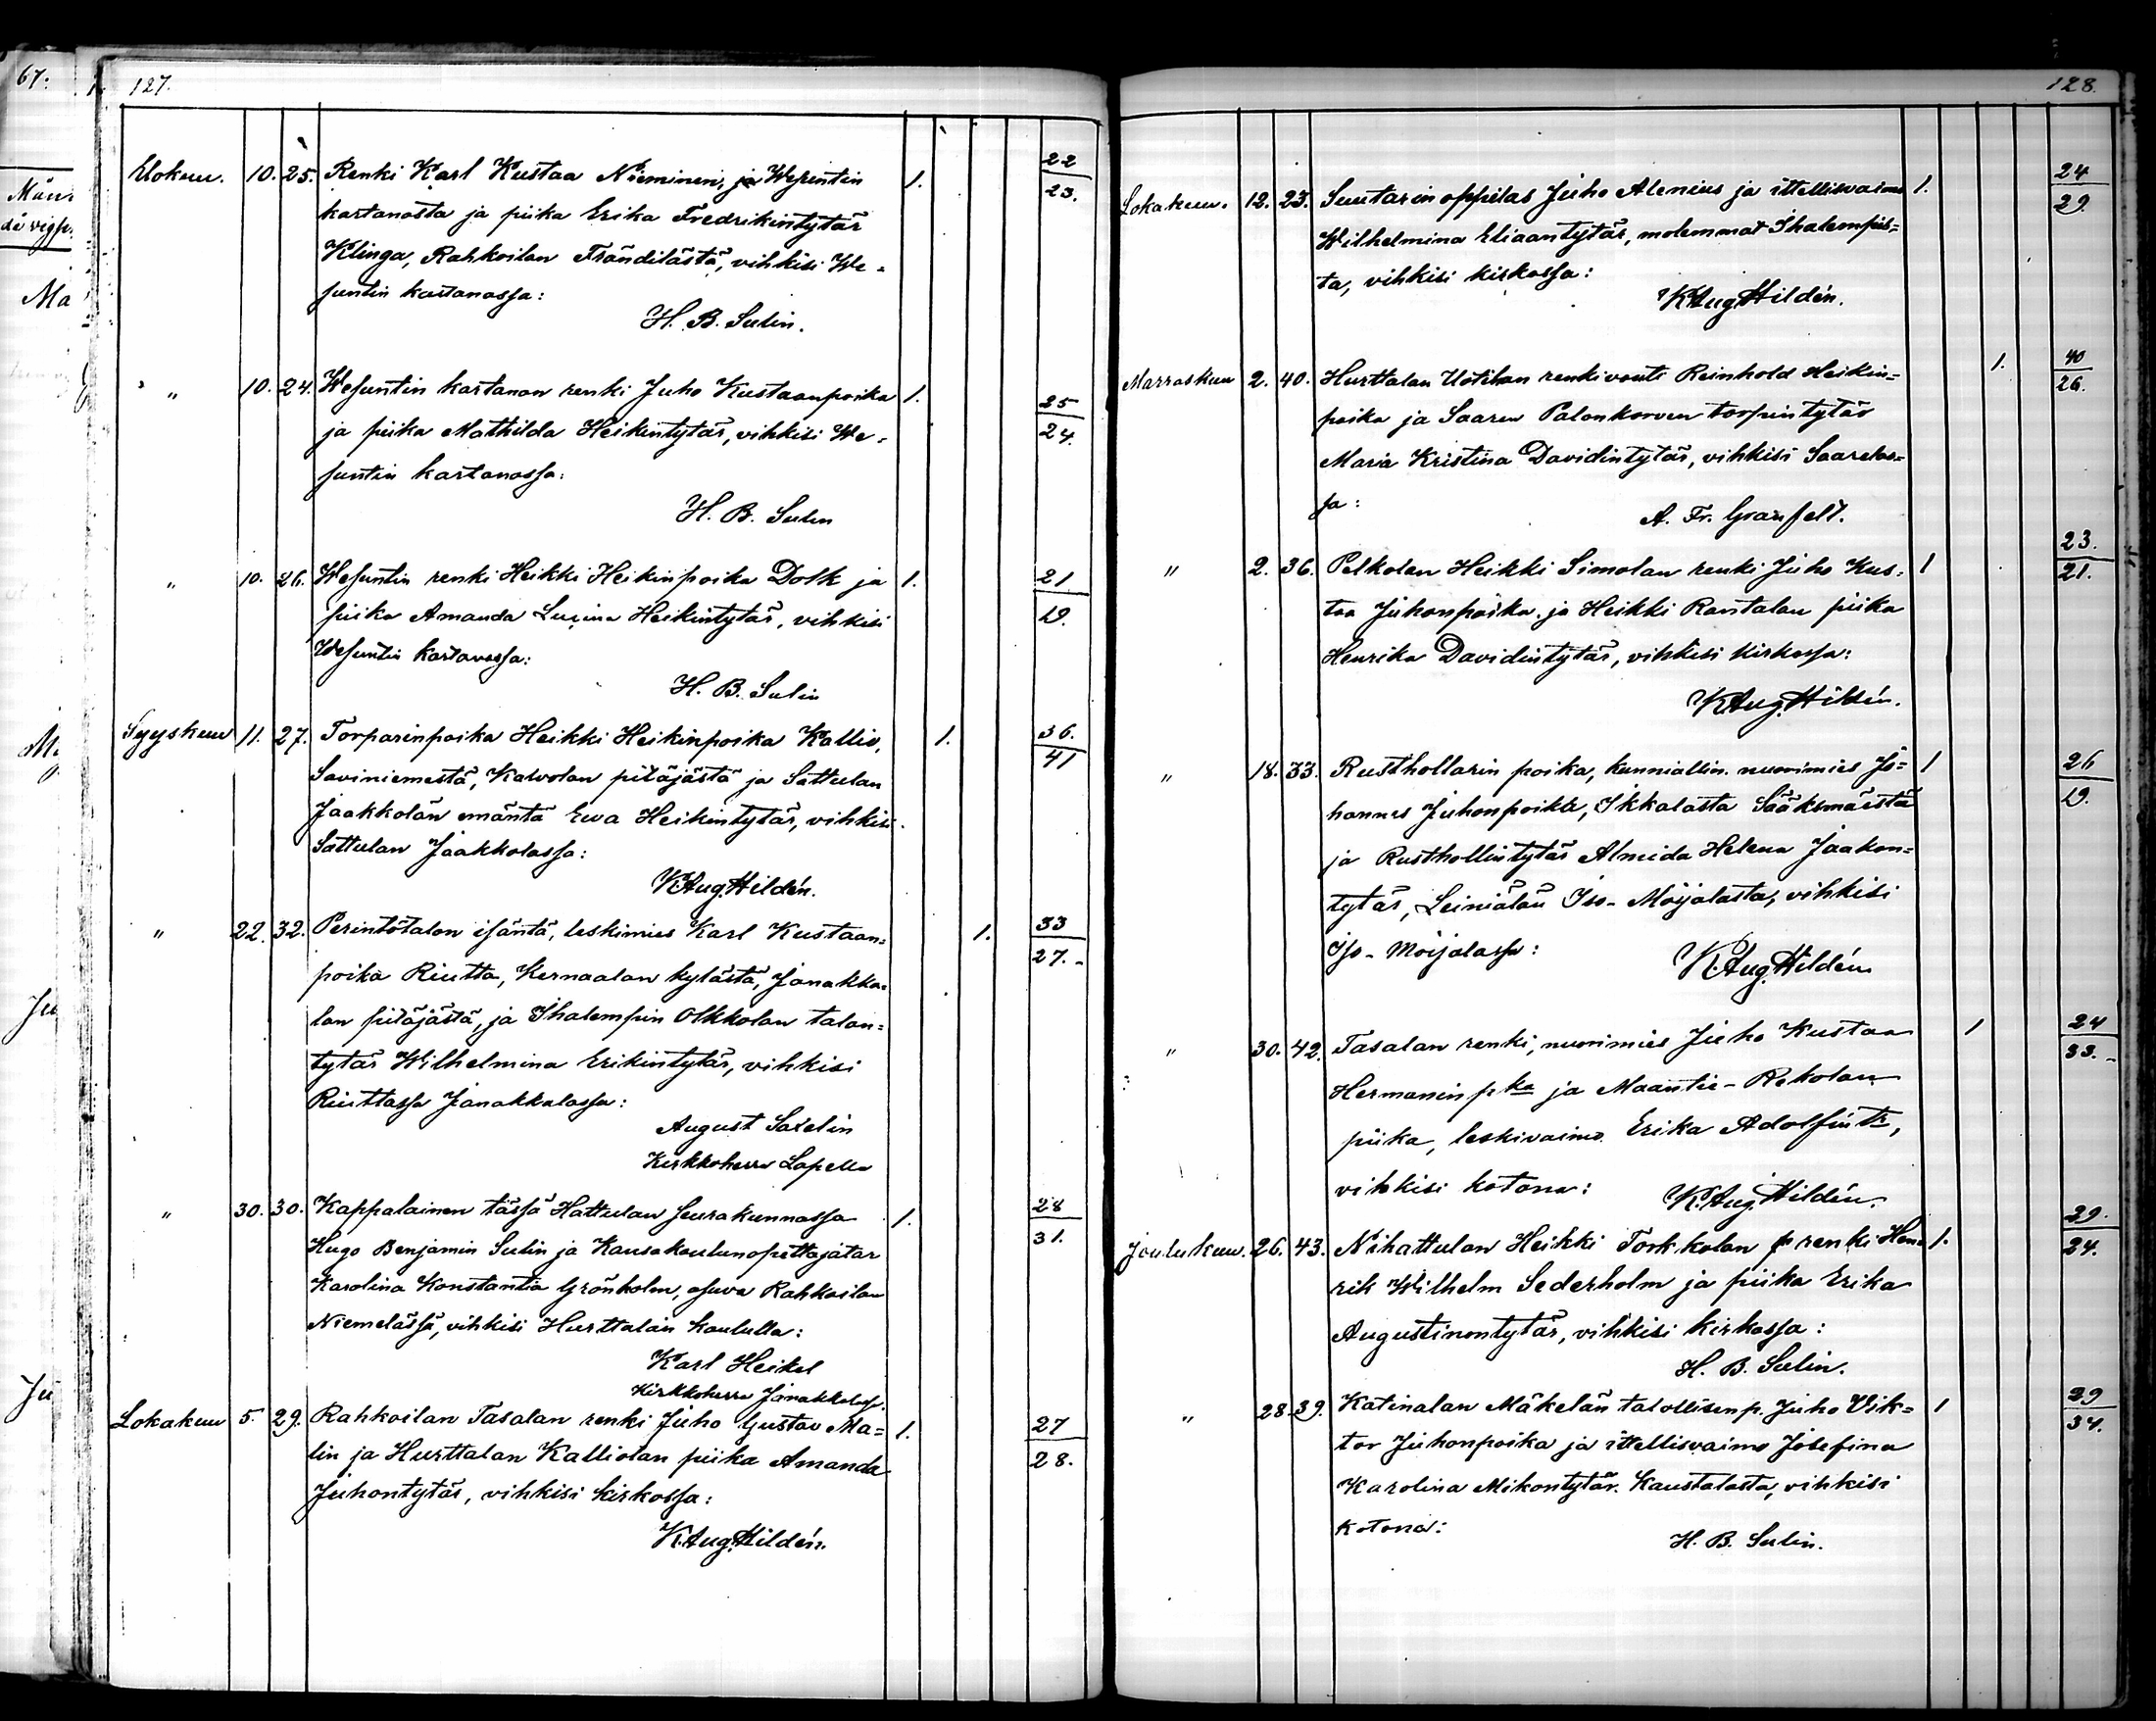 67.
127.
Elokuu. 10. 25. Renki Karl Kustaa Nieminen, ja Wesuntin 1. 22
kartanosta ja piika Erika Fredrikintytär 23.
Klinga, Rahkoilan Frändilästä, vihkisi We-
suntin kartanossa:
H. B. Sulin.
" 10. 24. Wesuntin kartanon renki Juho Kustaanpoika 1. 25
ja piika Mathilda Heikintytär, vihkisi We- 24.
suntin kartanossa:
H. B. Sulin
" 10. 26. Wesuntin renki Heikki Heikinpoika Dolk ja 1. 21
piika Amanda Lusina Heikintytär, vihkisi 19.
Wesuntin kartanossa:
H. B. Sulin
Syyskuu 11. 27. Torparinpoika Heikki Heikinpoika Kallio, 1. 36.
Saviniemestä, Kalvolan pitäjästä ja Sattulan 41
Jaakkolan emäntä Ewa Heikintytär, vihkisi
Sattulan Jaakkolassa:
K. Aug. Hildén.
" 22. 32. Perintötalon isäntä, leskimies Karl Kustaan= 1. 33
poika Riutta, Kernaalan kylästä, Janakka= 27.-
lan pitäjästä, ja Ihalempin Olkkolan talon=
tytär Wilhelmina Erikintytär, vihkisi
Riuttassa Janakkalassa:
August Saxelin
Kirkkoherra Lopella
" 30. 30. Kappalainen tässä Hattulan seurakunnassa 1. 28
Hugo Benjamin Sulin ja Kansakoulunopettajatar 31.
Karolina Konstantia Grönholm, asuva Rahkoilan
Niemelässä, vihkisi Hurttalan koululla:
Karl Heikel
Kirkkoherra Janakkalassa.
Lokakuu 5. 29. Rahkoilan Tasalan renki Juho Gustav Ma= 1. 27
lin ja Hurttalan Kalliolan piika Amanda 28.
Juhontytär, vihkisi kirkossa:
K. Aug. Hildén.
128.
Lokakuu. 12. 23. Suutarinoppilas Juho Alenius ja ittellisvaimo 1. 24
Wilhelmina Eliaantytär, molemmat Ihalempis= 29.
ta, vihkisi kirkossa:
K. Aug. Hildén.
Marraskuu 2. 40. Hurttalan Uotilan renkivouti Reinhold Heikin= 1. 40
poika ja Saaren Palonkorven torpintytär 26.
Maria Kristina Davidintytär, vihkisi Saarelas=
sa:
A. Fr. Granfelt.
" 2. 36. Pelkolan Heikki Simolan renki Juho Kus= 1 23.
taa Juhonpoika ja Heikki Rantalan piika 21.
Henrika Davidintytär, vihkisi kirkossa:
K. Aug. Hildén.
" 18. 33. Rusthollarin poika, kunniallin. nuorimies Jo= 1 26
hannes Juhonpoika, Ikkalasta Sääksmäestä 19.
ja Rusthollintytär Almida Helena Jaakon=
tytär, Leiniälän Iso-Möijalasta, vihkisi
Iso-Möijalassa:
K. Aug. Hildén
" 30. 42. Tasalan renki, nuorimies Juho Kustaa 1 24
Hermaninpka ja Maantie-Rekolan 33.-
piika, leskivaimo Erika Adolfintr,
vihkisi kotona:
K. Aug. Hildén.
Joulukuu. 26. 43. Nihattulan Heikki Torkkolan renki Hen= 1. 29.
rik Wilhelm Sederholm ja piika Erika 24.
Augustinontytär, vihkisi kirkossa:
H. B. Sulin.
" 28. 39. Katinalan Mäkelän talollisenp. Juho Vik= 1 29
tor Juhonpoika ja ittellisvaimo Josefina 34.
Karolina Mikontytär Kaustalasta, vihkisi
kotona:
H. B. Sulin.